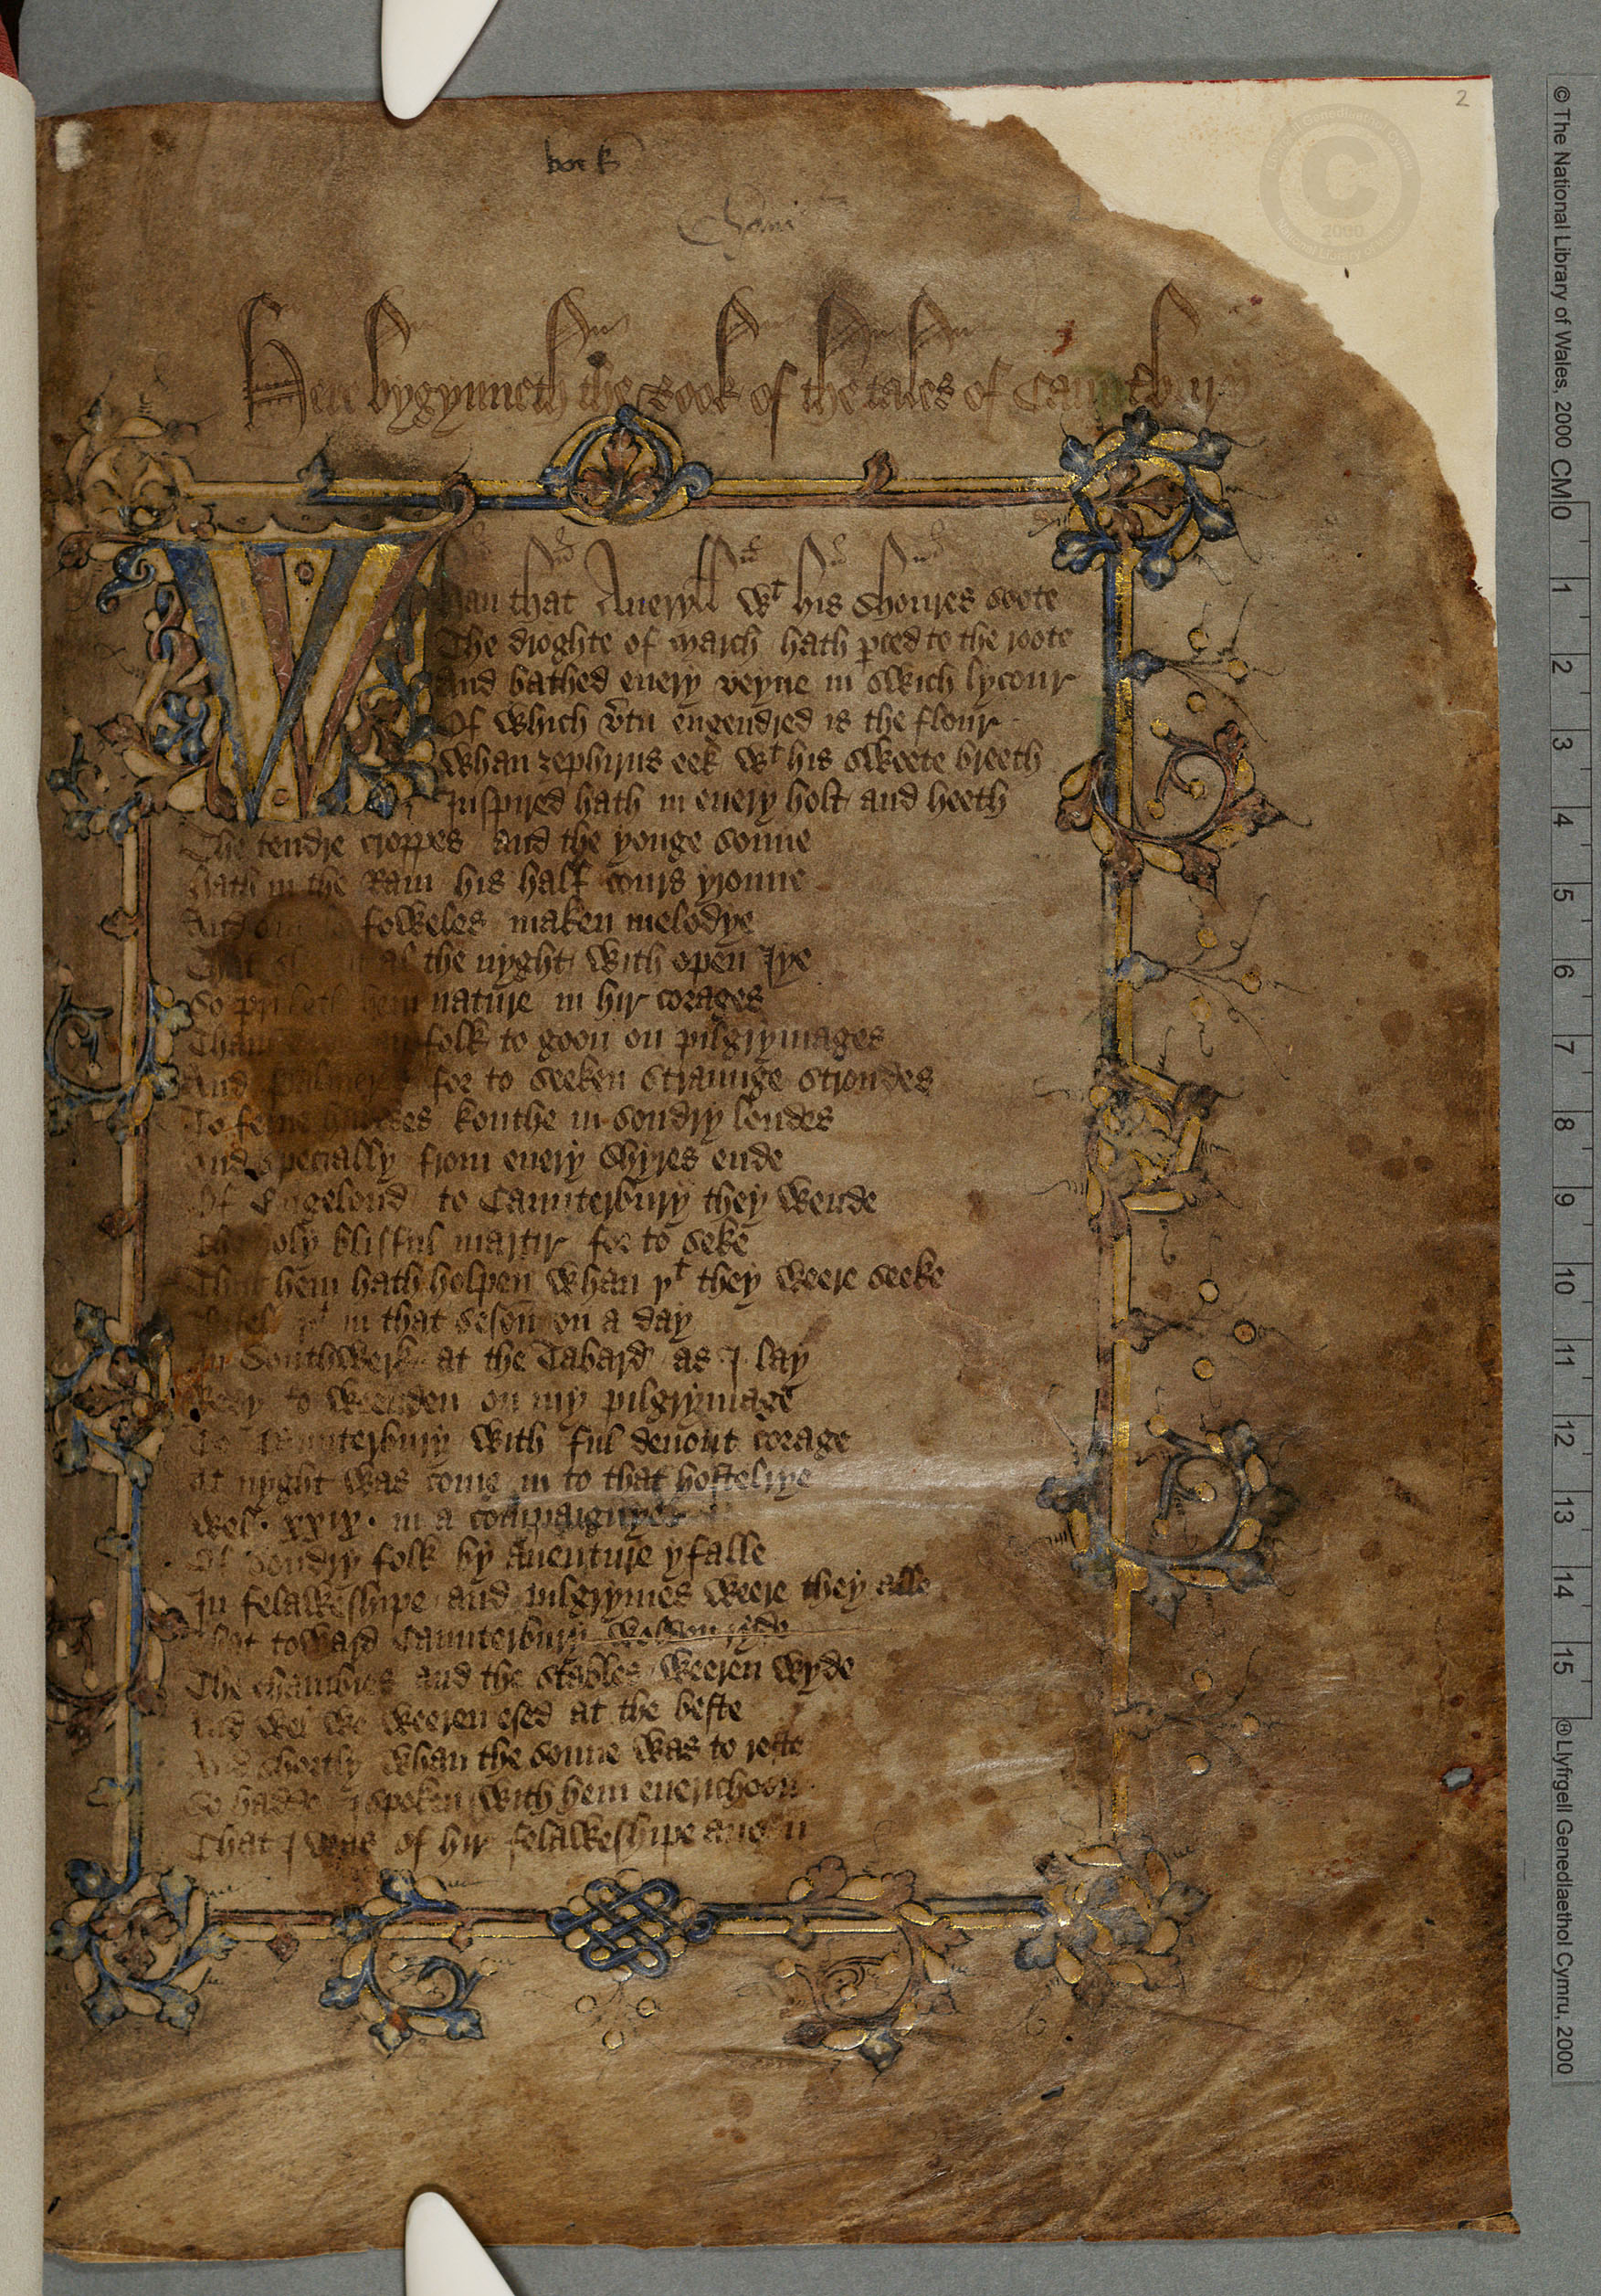 2
Here bygynneth the Book of the tales of Caunt̄bury
Whan that Aueryłł wᵗ his shoures soote
The droghte of march hath ꝑced to the roote
And bathed euery veyne in swich lycour
Of which v̄tu engendred is the flour
Whan zephirus eek wᵗ his sweete breeth
Inspired hath in euery holt and heeth
The tendre croppes and the yonge sonne
hath in the Ram his half cours yronne
And foweles maken melodye
That al the nyght with open Iye
So priketh hem nature in hir corages
folk to goon on pilgrymages
And Palmeres for to seeken straunge strondes
To ferne halwes kouthe in sondry londes
And specially from euery shyres ende
Of Engelond to Caunterbury they wende
The holy blisful martir for to seke
That hem hath holpen whan yᵗ they weere seeke
yᵗ in that seson on a day
In Southwerk at the Tabard as I lay
Redy to weenden on my pilgrymage
To Caunterbury with ful deuout corage
At nyght was come in to that hostelrye
Wel · xxix · in a compaignye
Of sondry folk by auenture yfalle
In felaweshipe and pilgrymes weere they alle
That toward Caunterbury wolden ryde
The chambres and the stables weeren wyde
And wel we weeren esed at the beste
And shortly whan the sonne was to reste
So hadde I spoken with hem euerichoon
That I was of hir felaweshipe anon
© The National Library of Wales, 2000 CM 0 1 2 3 4 5 6 7 8 9 10 11 12 13 14 15 ® Llyfrgell Genedlaethol Cymru, 2000